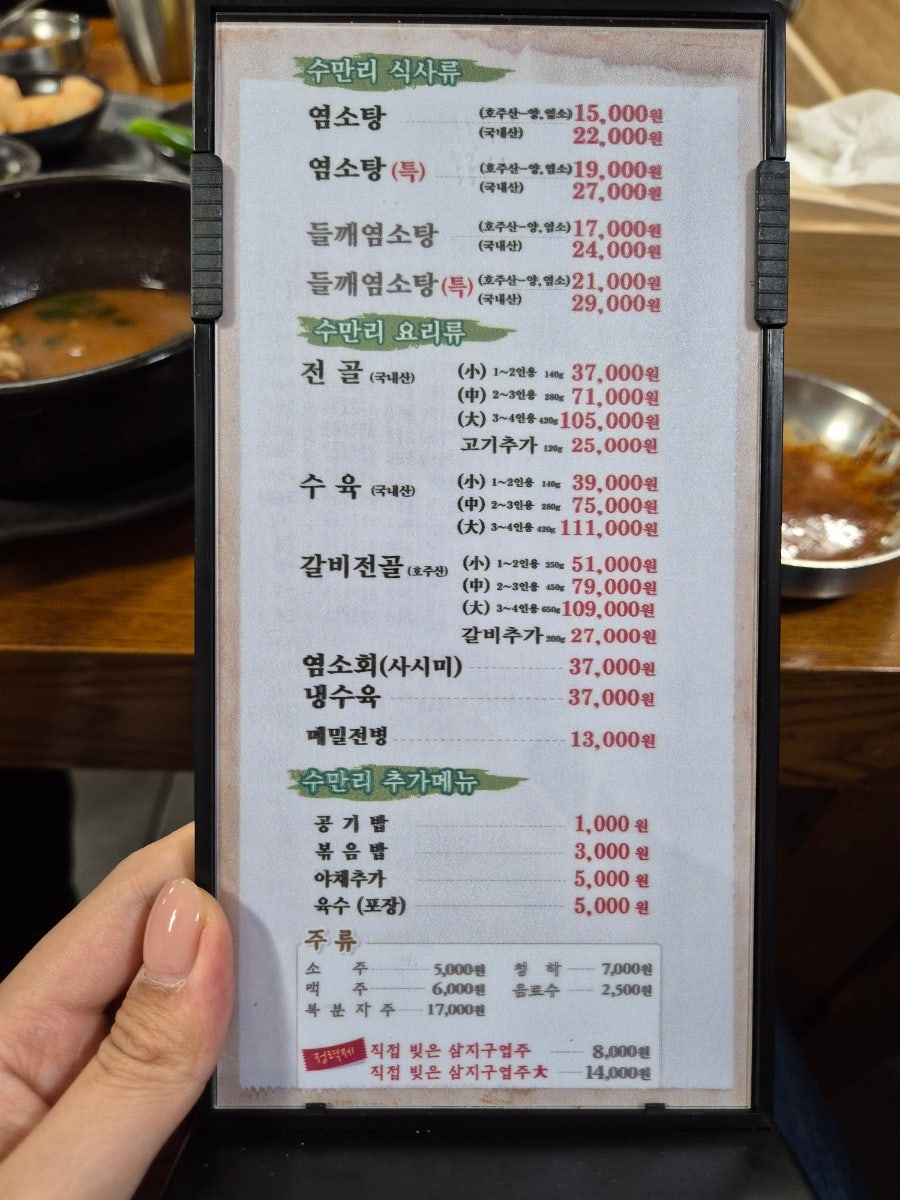 수만리 식사류
염소탕 (호주산-양,염소) 15,000원
(국내산) 22,000원
염소탕 (특) (호주산-양,염소) 19,000원
(국내산) 27,000원
들깨염소탕 (호주산-양,염소) 17,000원
(국내산) 24,000원
들깨염소탕 (특) (호주산-양,염소) 21,000원
(국내산) 29,000원
수만리 요리류
전 골 (국내산) (小) 1~2인용 140g 37,000원
(中) 2~3인용 280g 71,000원
(大) 3~4인용 420g 105,000원
고기추가 120g 25,000원
수 육 (국내산) (小) 1~2인용 140g 39,000원
(中) 2~3인용 280g 75,000원
(大) 3~4인용 420g 111,000원
갈비전골 (호주산) (小) 1~2인용 250g 51,000원
(中) 2~3인용 450g 79,000원
(大) 3~4인용 650g 109,000원
갈비추가 200g 27,000원
염소회(사시미) 37,000원
냉수육 37,000원
메밀전병 13,000원
수만리 추가메뉴
공 기 밥 1,000 원
볶 음 밥 3,000 원
야채추가 5,000 원
육수 (포장) 5,000 원
주 류
소 주 5,000원 청 하 7,000원
맥 주 6,000원 음료수 2,500원
복 분 자 주 17,000원
정력제 직접 빚은 삼지구엽주 8,000원
직접 빚은 삼지구엽주大 14,000원